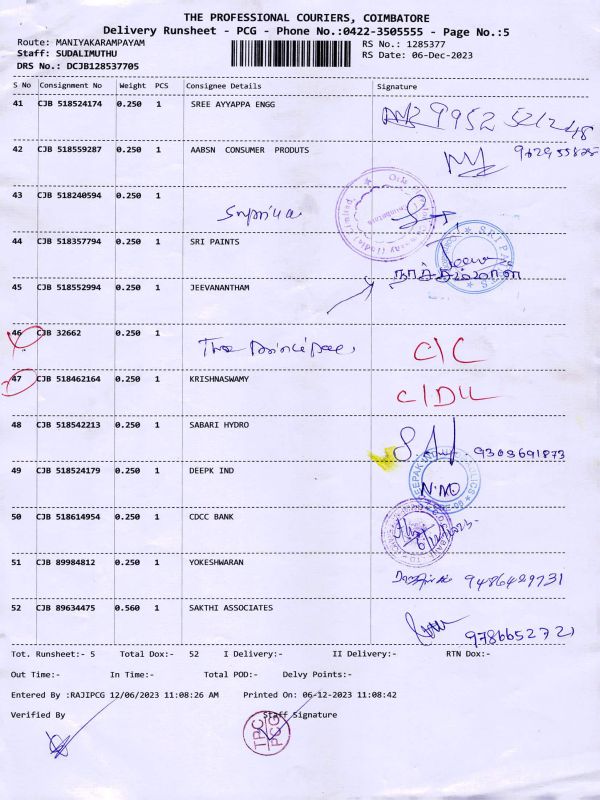 THE PROFESSIONAL COURIERS, COIMBATORE
Delivery Runsheet - PCG - Phone No.:0422-3505555 - Page No.:5
Route: MANIYAKARAMPAYAM
Staff: SUDALIMUTHU
DRS No.: DCJB128537705
RS No.: 1285377
RS Date: 06-Dec-2023
S No Consignment No Weight PCS Consignee Details Signature
41 CJB 518524174 0.250 1 SREE AYYAPPA ENGG 9952 521248
42 CJB 518559287 0.250 1 AABSN CONSUMER PRODUTS
43 CJB 518240594 0.250 1 Supriya
44 CJB 518357794 0.250 1 SRI PAINTS
45 CJB 518552994 0.250 1 JEEVANANTHAM
46 CJB 32662 0.250 1 The Principal C/C
47 CJB 518462164 0.250 1 KRISHNASWAMY C/DLL
48 CJB 518542213 0.250 1 SABARI HYDRO 9303691873
49 CJB 518524179 0.250 1 DEEPK IND N.MO
50 CJB 518614954 0.250 1 CDCC BANK
51 CJB 89984812 0.250 1 YOKESHWARAN 9486429731
52 CJB 89634475 0.560 1 SAKTHI ASSOCIATES 9786652721
Tot. Runsheet:- 5 Total Dox:- 52 I Delivery:- II Delivery:- RTN Dox:-
Out Time:- In Time:- Total POD:- Delvy Points:-
Entered By :RAJIPCG 12/06/2023 11:08:26 AM Printed On: 06-12-2023 11:08:42
Verified By Staff Signature
TPC
PCG